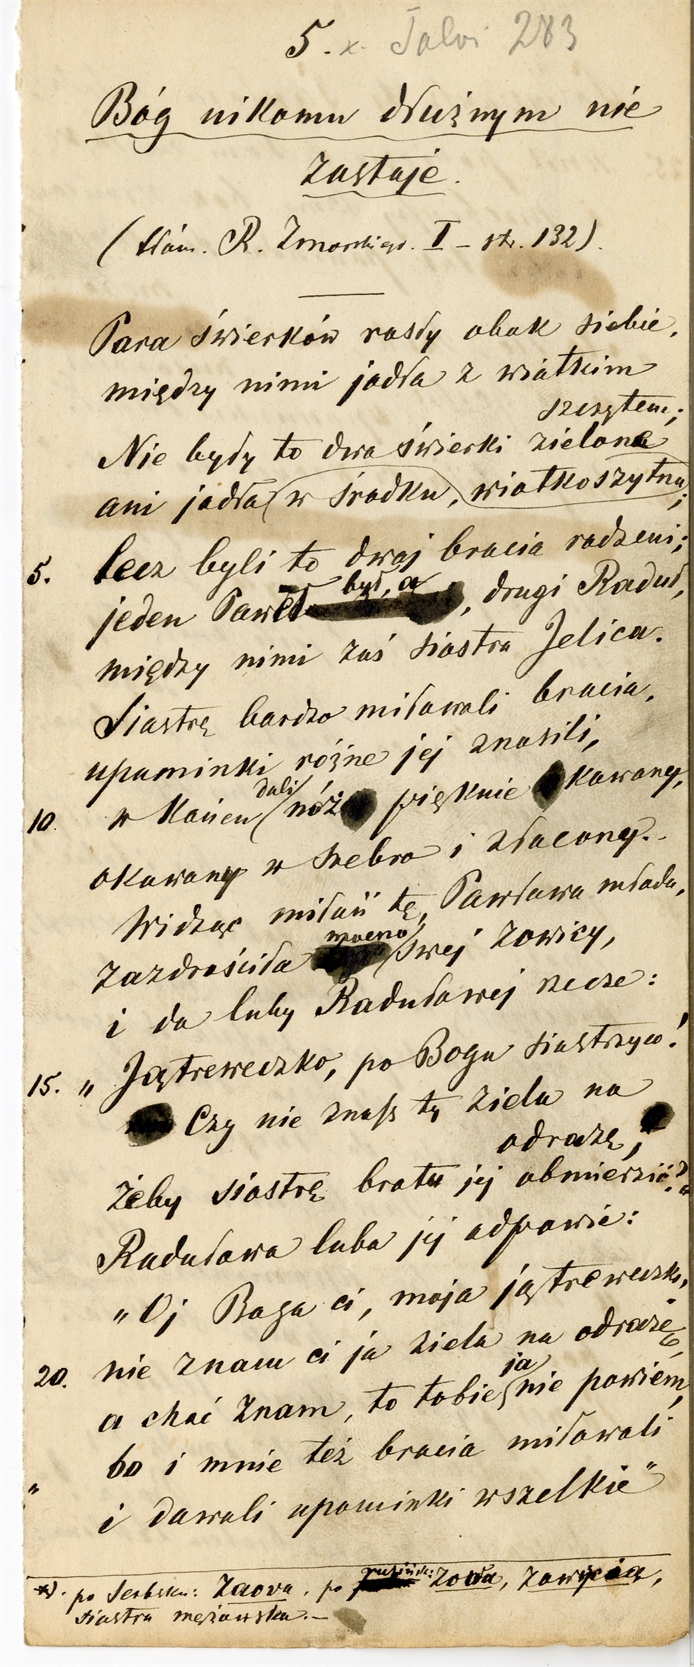 5. x. Talvi 283
Bóg nikomu dłużnym nie
zastaje.
(tłóm. R. Zmorskiego. I – str. 132).
Para świerków rosły obok siebie,
między nimi jodła z wiotkim
szczytem;
Nie były to dwa świerki zielone
ani jodła w środku, wiotkoszytna;
5. lecz byli to dwaj bracia rodzeni;
jeden Paweł był, a, drugi Raduł,
między nimi zaś siostra Jelica.
Siostrę bardzo miłowali bracia,
upominki różne jej znosili,
10. w końcu dali nóż pięknie okowany,
okowany w srebro i złocony.
Widząc miłość tę, Pawłowa młoda,
zazdrościła mocno swej zowicy,
i do luby Radułowej rzecze:
15. „Jątreweczko, po Bogu siostrzyco!
Czy nie znasz ty ziela na
odrazę,
żeby siostrę bratu jej obmierzić?"
Radułowa luba jej odpowie:
„Oj Boga ci, moja jątreweczko,
20. nie znam ci ja ziela na odrazę,
a choć znam, to tobie ja nie powiem,
bo i mnie też bracia miłowali
„ i dawali upominki wszelkie"
*). po Serbsku: Zaova, po rusińsk: zowa, zowycia,
siostra mężowska.—